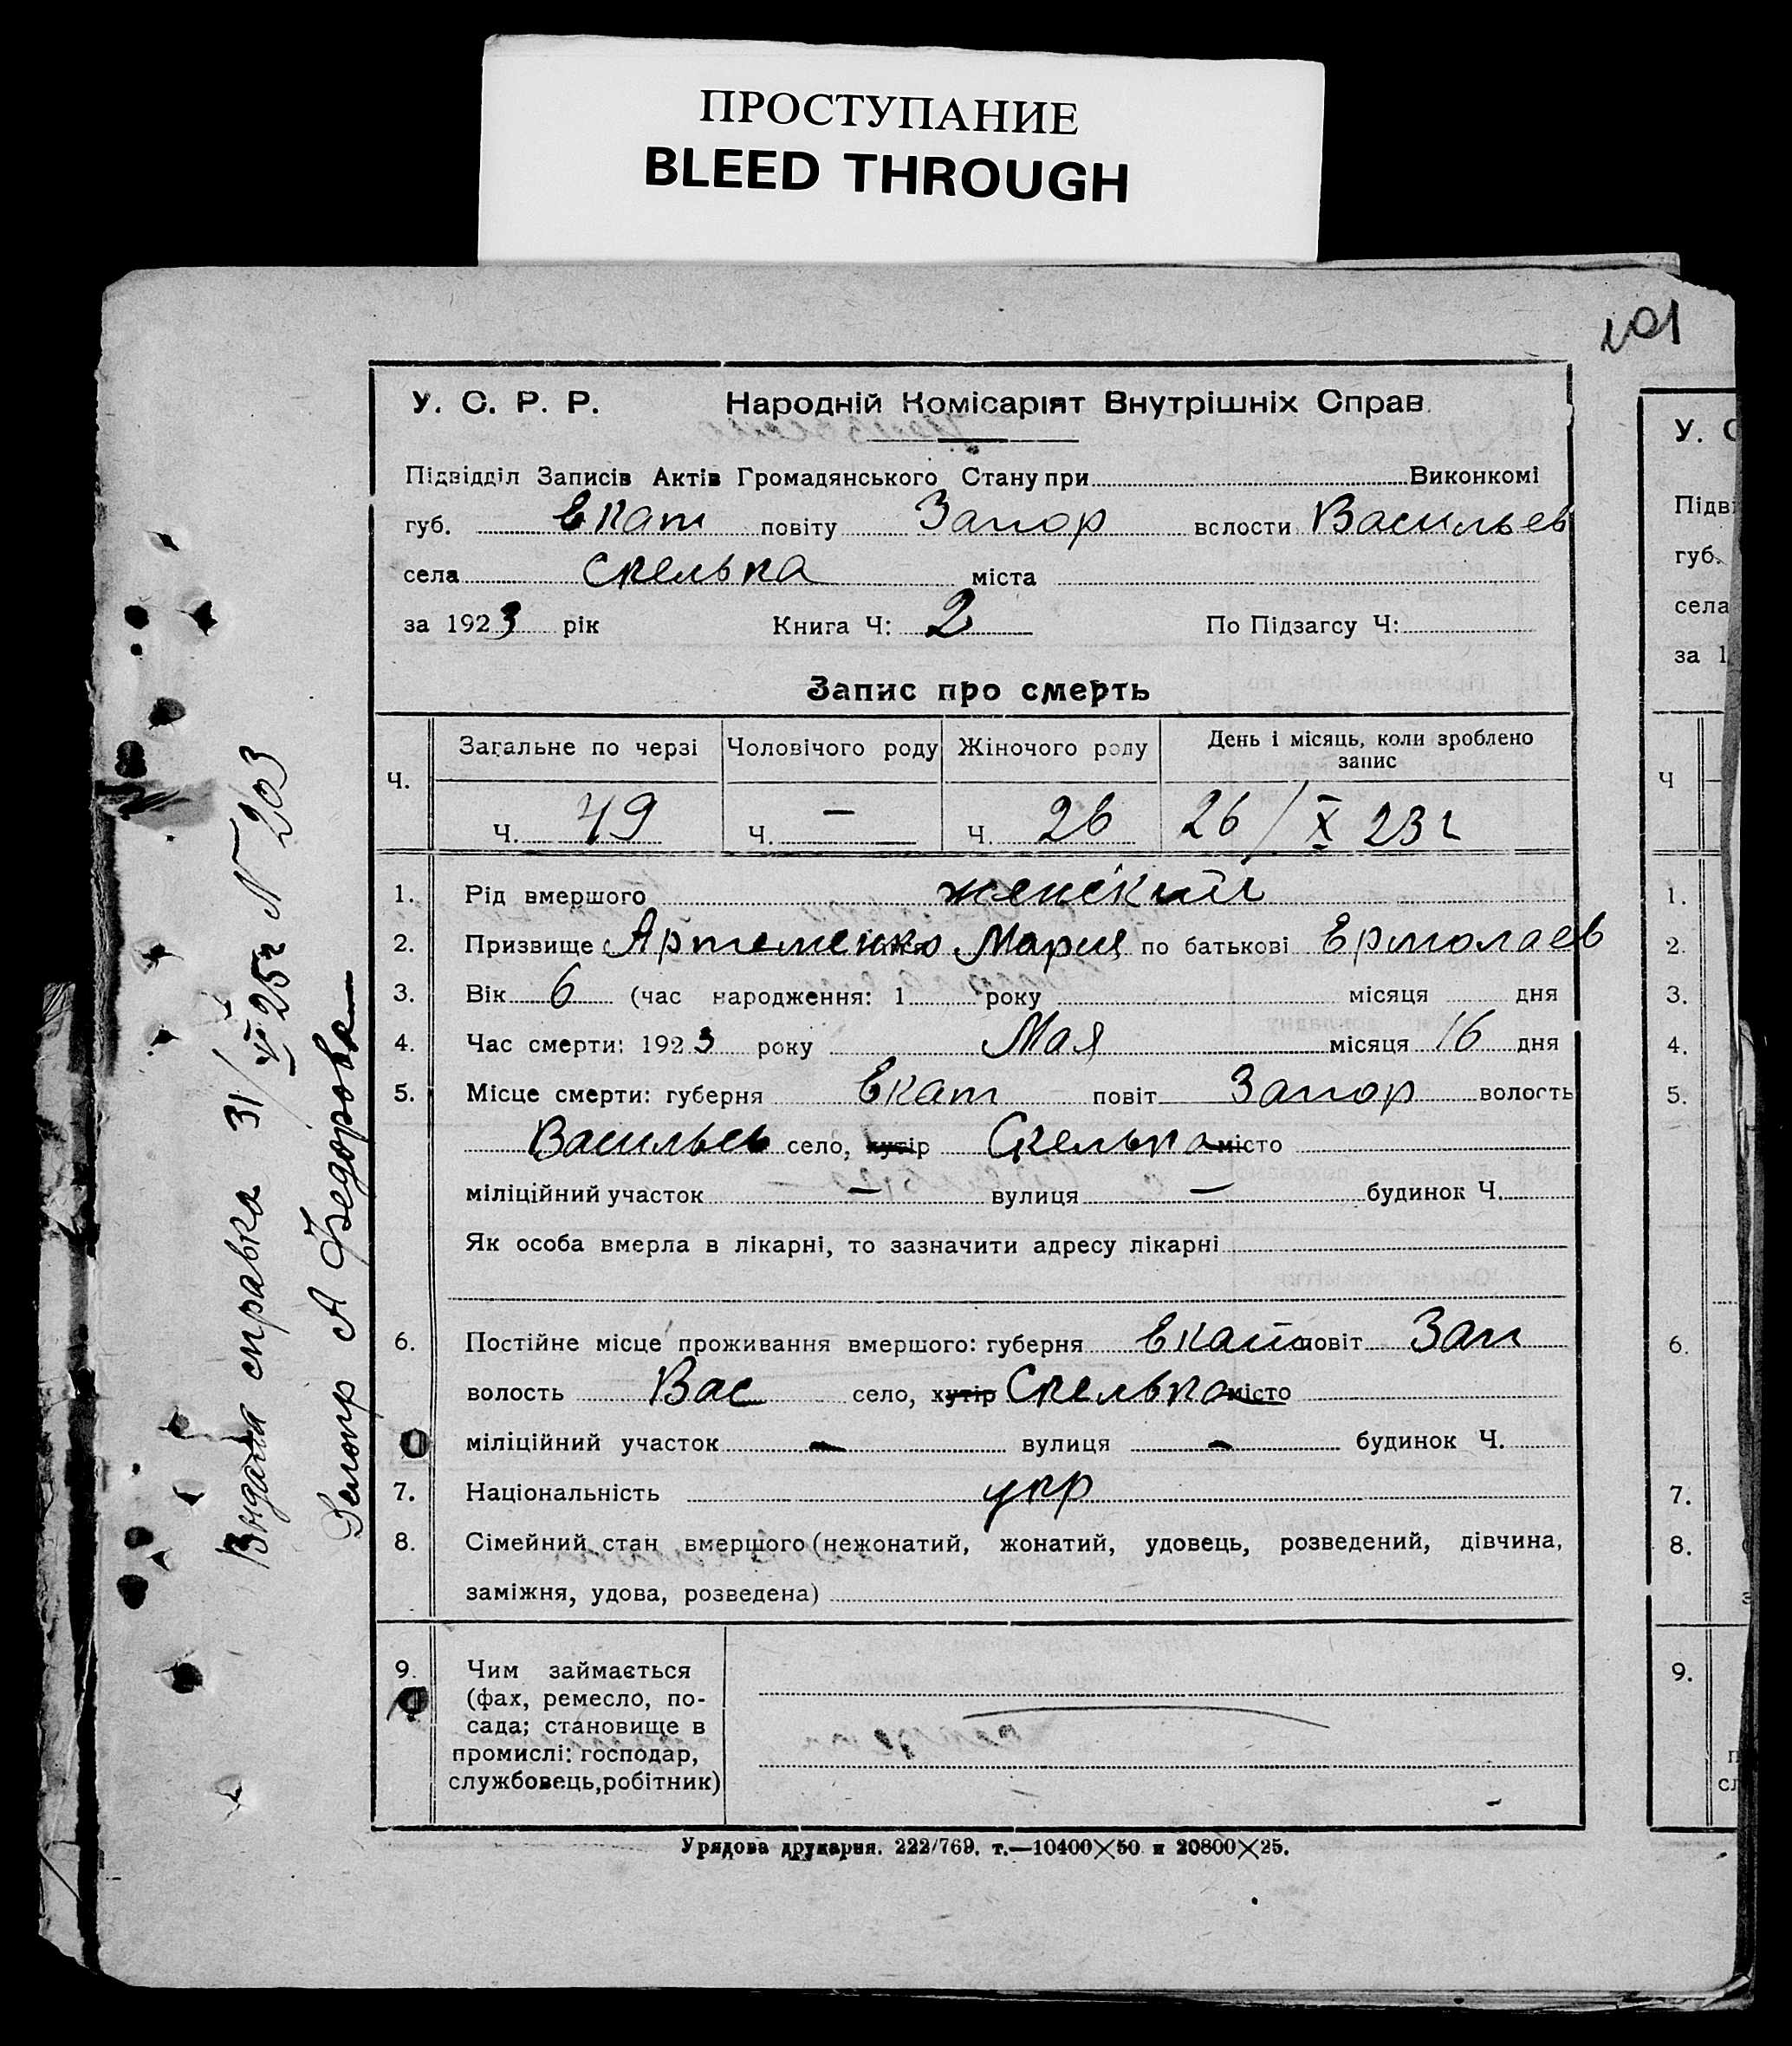 ПРОСТУПАНИЕ
BLEED THROUGH
101
У. С. Р. Р. Народній Комісаріят Внутрішніх Справ.
Підвідділ Записів Актів Громадянського Стану при Виконкомі
губ. Екат повіту Запор волости Васильев
села Скелька міста
за 1923 рік Книга Ч: 2 По Підзагсу Ч:
Запис про смерть
Ч. Загальне по черзі Чоловічого роду Жіночого роду День і місяць, коли зроблено запис
Ч. 49 Ч. — Ч. 26 26/X 23 г
1. Рід вмершого женский
2. Призвище Артеменко Мария по батькові Ермолаев
3. Вік 6 (час народження: 1 року місяця дня
4. Час смерти: 1923 року Мая місяця 16 дня
5. Місце смерти: губерня Екат повіт Запор волость
Васильев село, хутір Скелька місто
міліційний участок — вулиця — будинок Ч.
Як особа вмерла в лікарні, то зазначити адресу лікарні
6. Постійне місце проживання вмершого: губерня Екат повіт Зап
волость Вас село, хутір Скелька місто
міліційний участок — вулиця — будинок Ч.
7. Національність укр
8. Сімейний стан вмершого (нежонатий, жонатий, удовець, розведений, дівчина,
заміжня, удова, розведена)
9. Чим займається
(фах, ремесло, по-
сада; становище в
промислі: господар,
службовець, робітник)
Урядова друкарня. 222/769. т.—10400×50 и 20800×25.
Выдана справка 31/VI 25 г N 203
А Федорова
У. С
Підві
губ.
села
за 1
Ч
1.
2.
3.
4.
5.
6.
7.
8.
9.